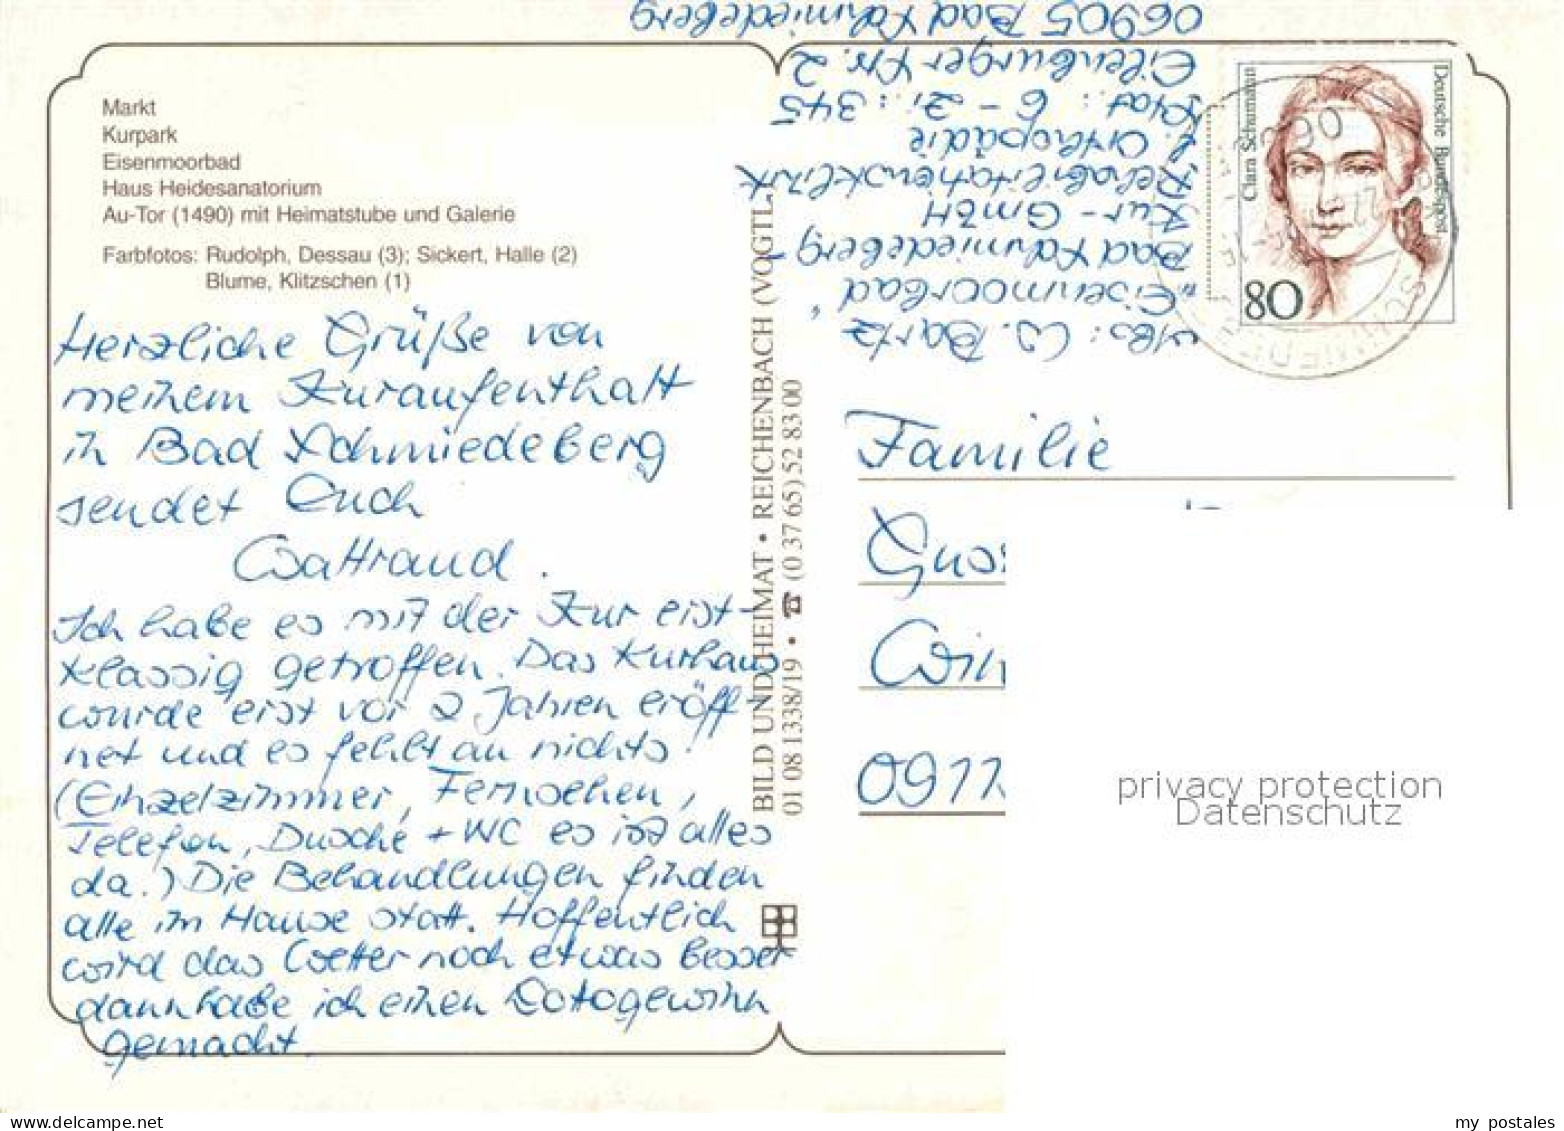 Markt
Kurpark
Eisenmoorbad
Haus Heidesanatorium
Au-Tor (1490) mit Heimatstube und Galerie
Farbfotos: Rudolph, Dessau (3); Sickert, Halle (2)
Blume, Klitzschen (1)
Herzliche Grüße von
meinem Kuraufenthalt
in Bad Schmiedeberg
sendet Euch
Waltraud.
Ich habe es mit der Kur erst-
klassig getroffen. Das Kurhaus
wurde erst vor 2 Jahren eröff-
net und es fehlt an nichts!
(Einzelzimmer, Fernsehen,
Telefon, Dusche + WC es ist alles
da.) Die Behandlungen finden
alle im Hause statt. Hoffentlich
wird das Wetter noch etwas besser
dann habe ich einen Lottogewinn
gemacht.
BILD UND HEIMAT • REICHENBACH (VOGTL.)
01 08 1338/19 • ☎ (0 37 65) 52 83 00
Abs: W. Bartz
"Eisenmoorbad"
Bad Schmiedeberg-
Kur-GmbH
Rehabilitationsklinik
f. Orthopädie
Stat.: 6 - Zi.: 345
Eilenburger Str. 2
06905 Bad Schmiedeberg
Deutsche Bundespost
Clara Schumann
80
Familie
0911
privacy protection
Datenschutz
my postales